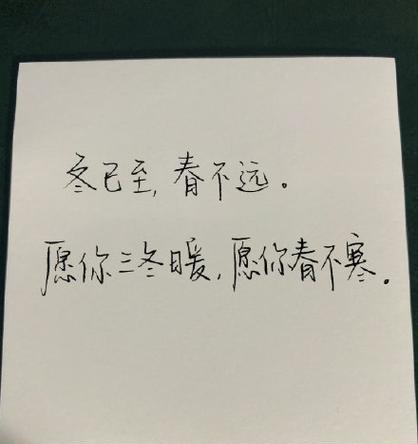 冬已至,春不远。
愿你三冬暖,愿你春不寒.